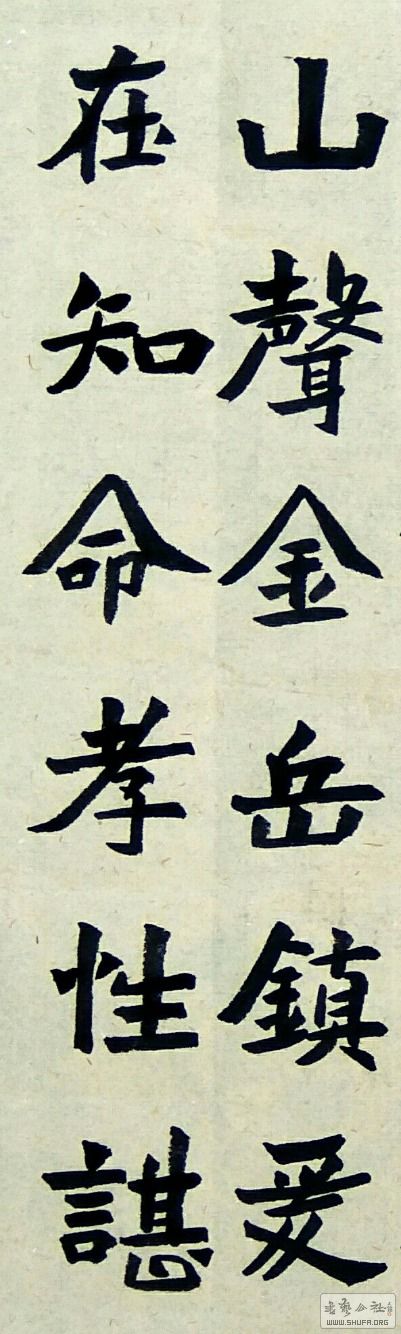 山聲金岳鎮爰
在知命孝性諶
書藝公社
WWW.SHUFA.ORG